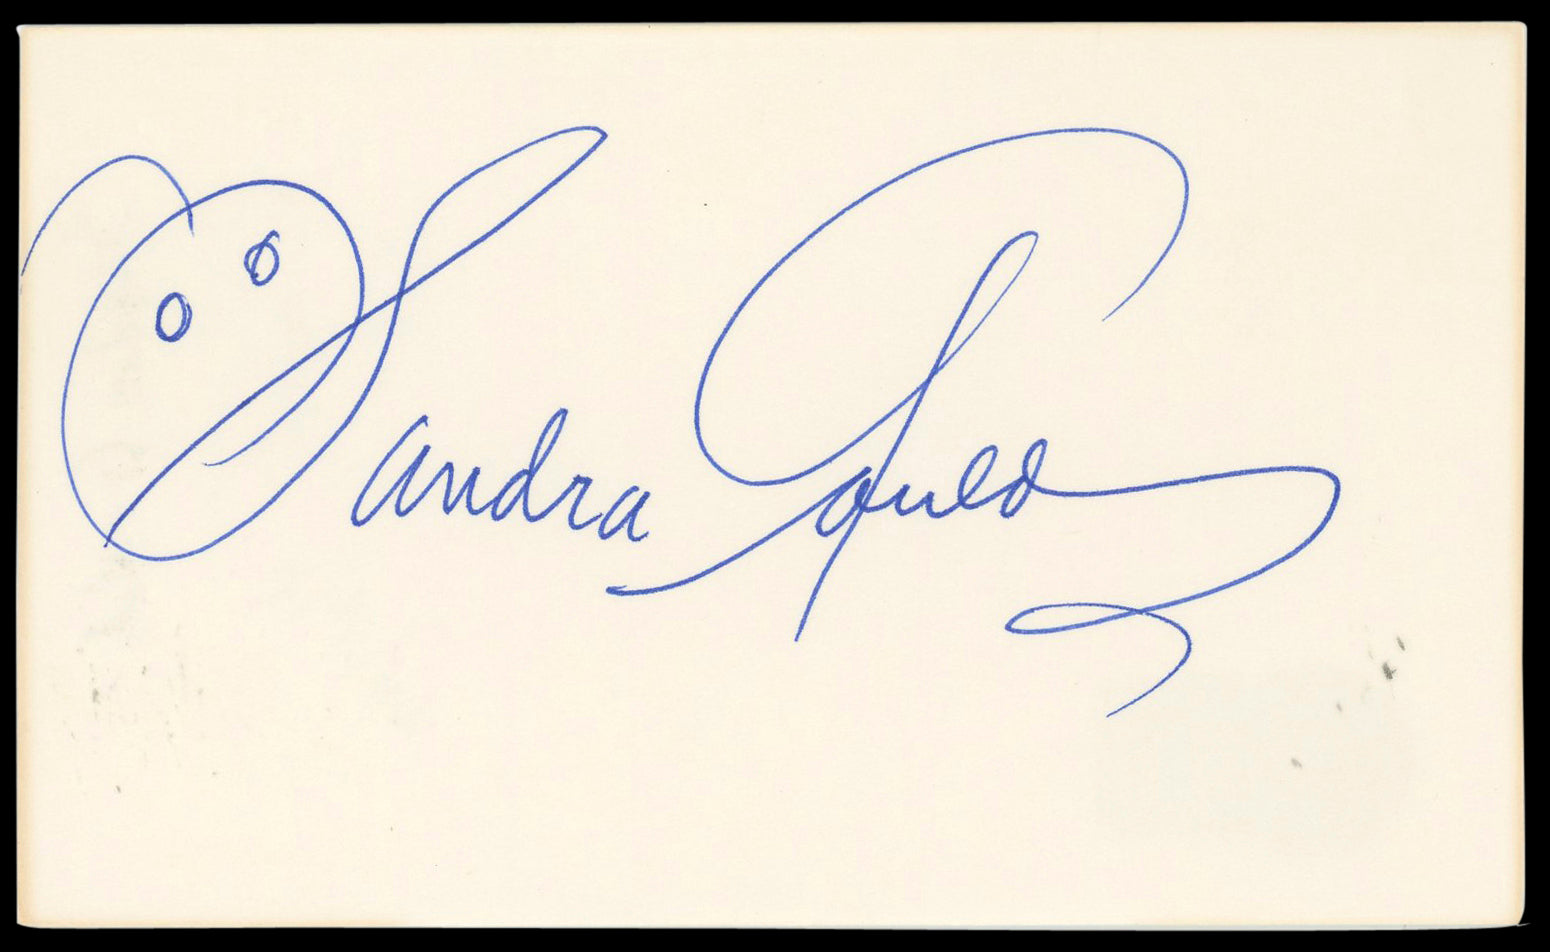 Sandra Gould